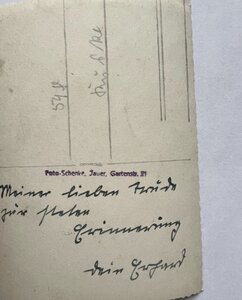 Foto-Schenke, Jauer, Gartenstr. 21
Meiner lieben Trude
zur steten
Erinnerung
dein Erhard